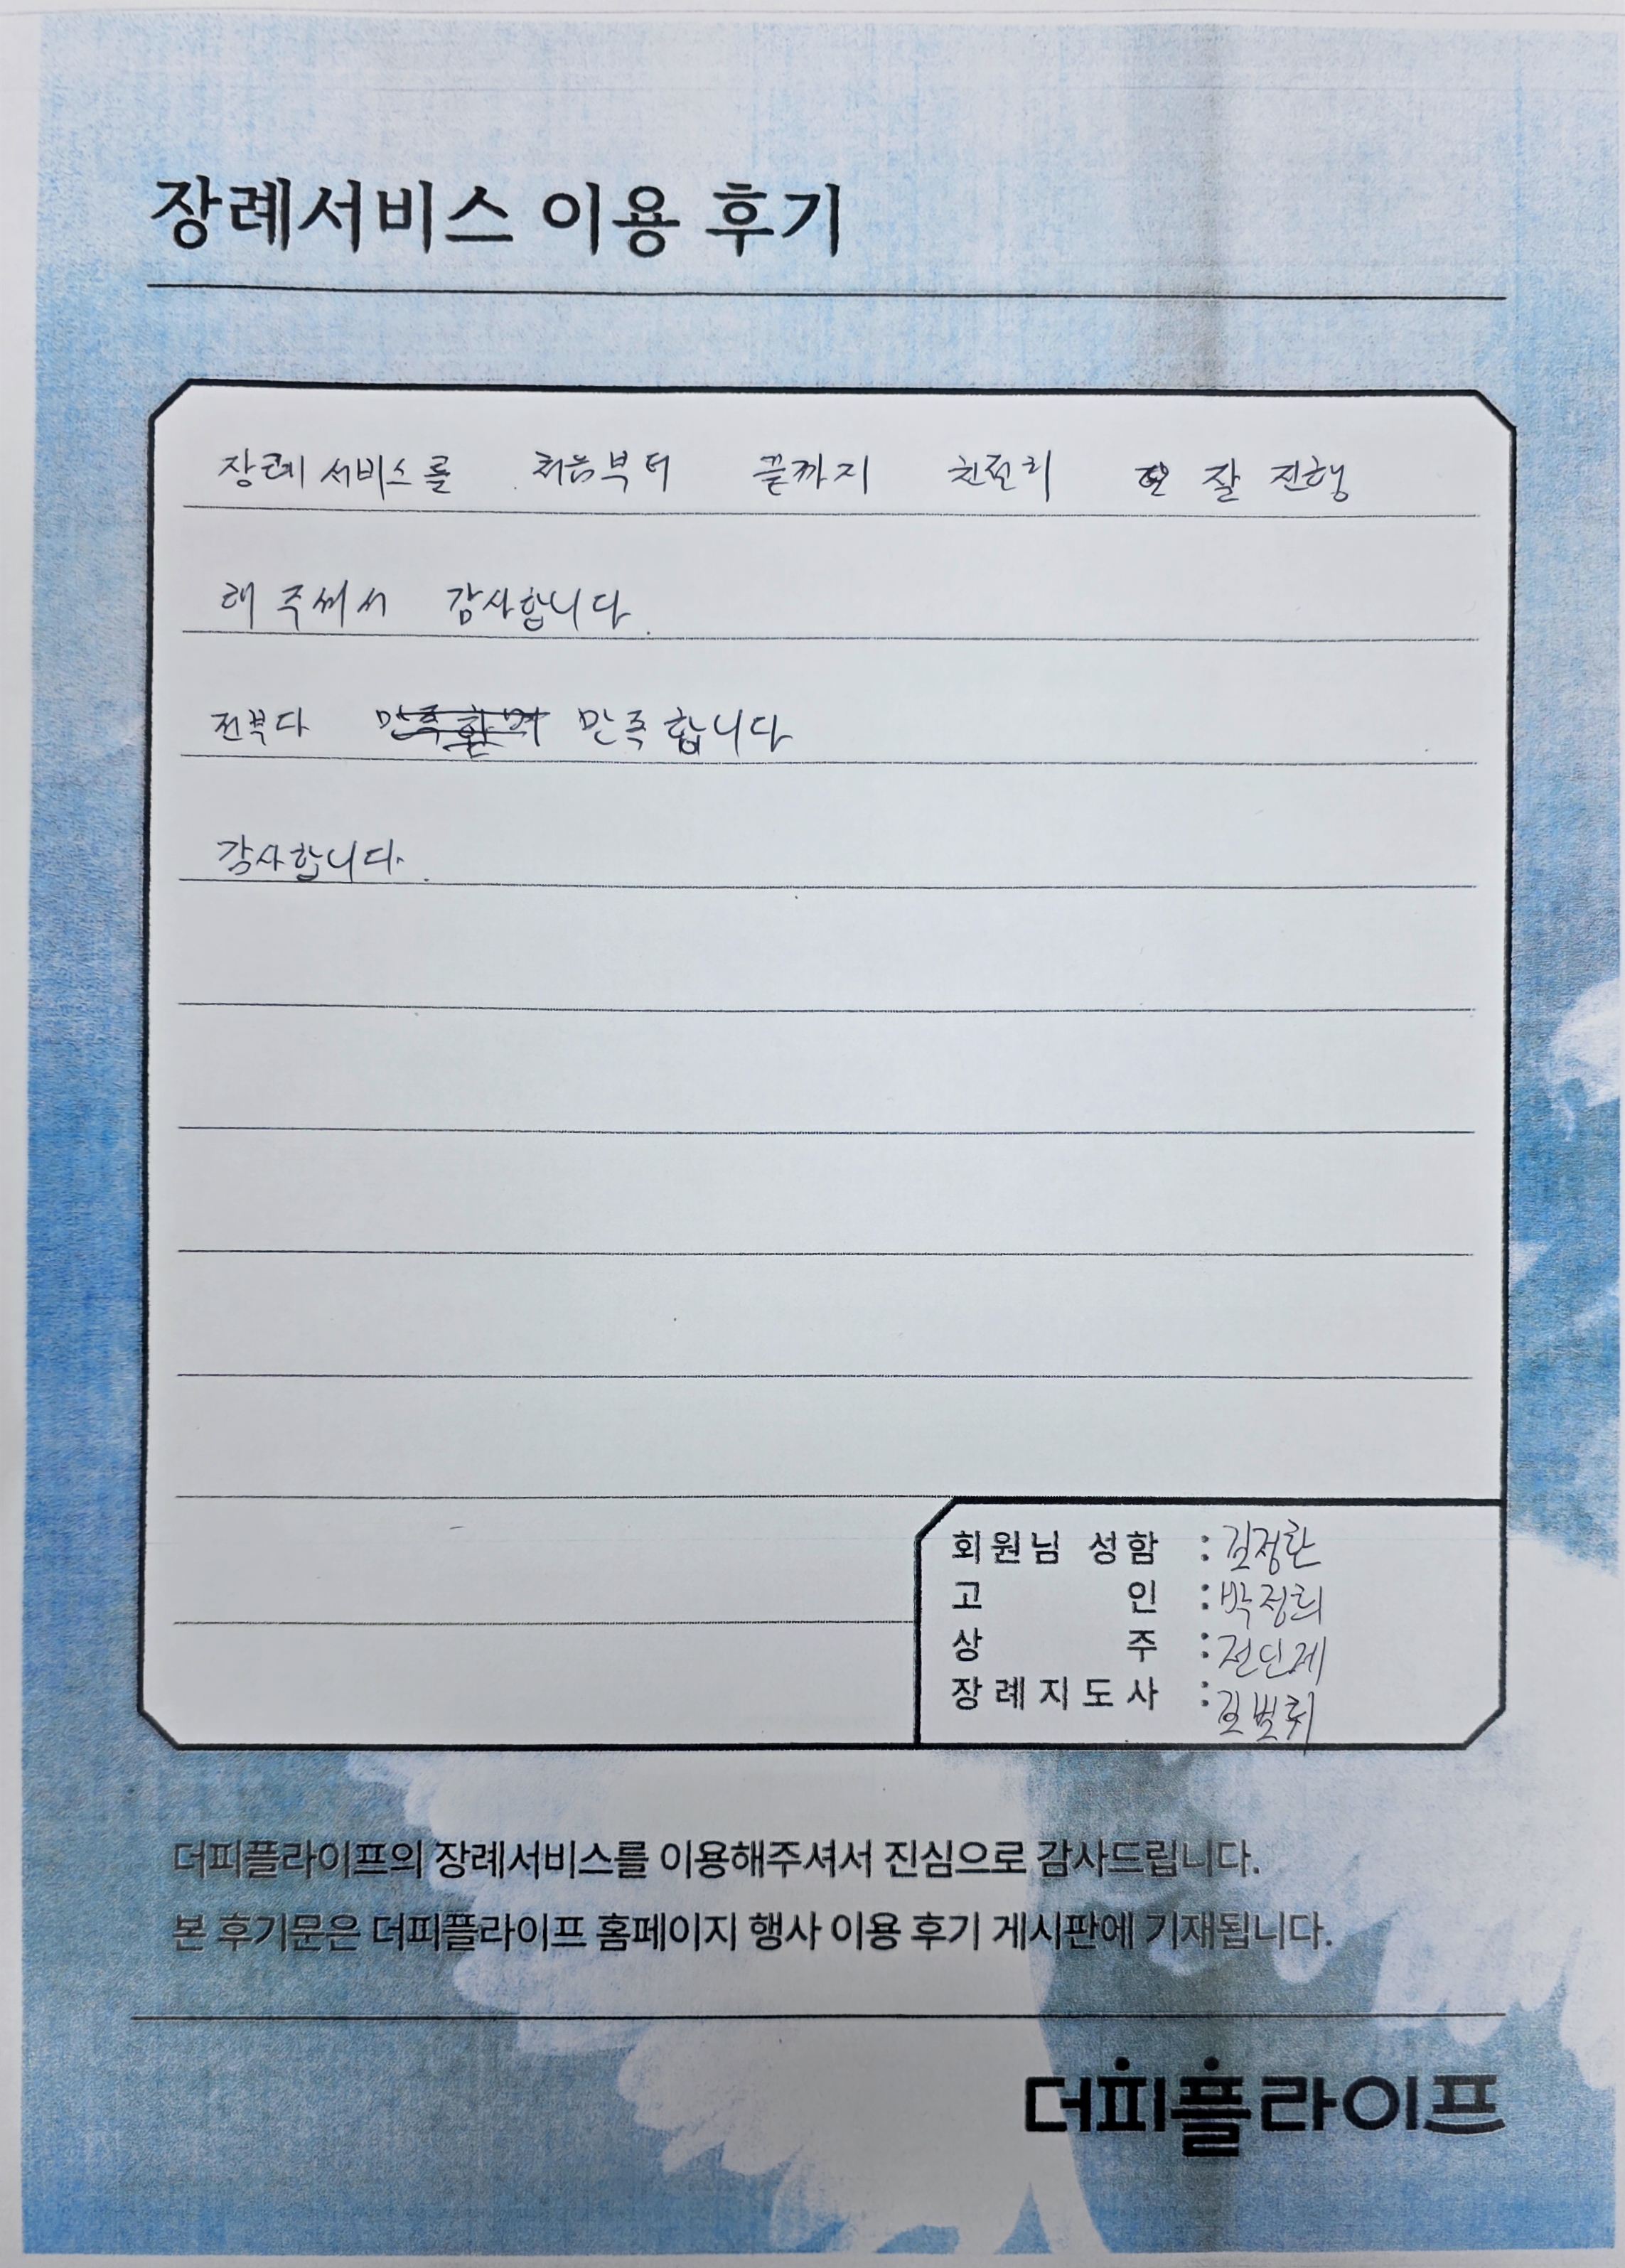 장례서비스 이용 후기
장례 서비스를 처음부터 끝까지 친절히 잘 진행
해 주셔서 감사합니다.
전부다 만족합니다
감사합니다.
회원님 성함 : 김정환
고 인 : 박정희
상 주 :
장례지도사 :
더피플라이프의 장례서비스를 이용해주셔서 진심으로 감사드립니다.
본 후기문은 더피플라이프 홈페이지 행사 이용 후기 게시판에 기재됩니다.
더피플라이프